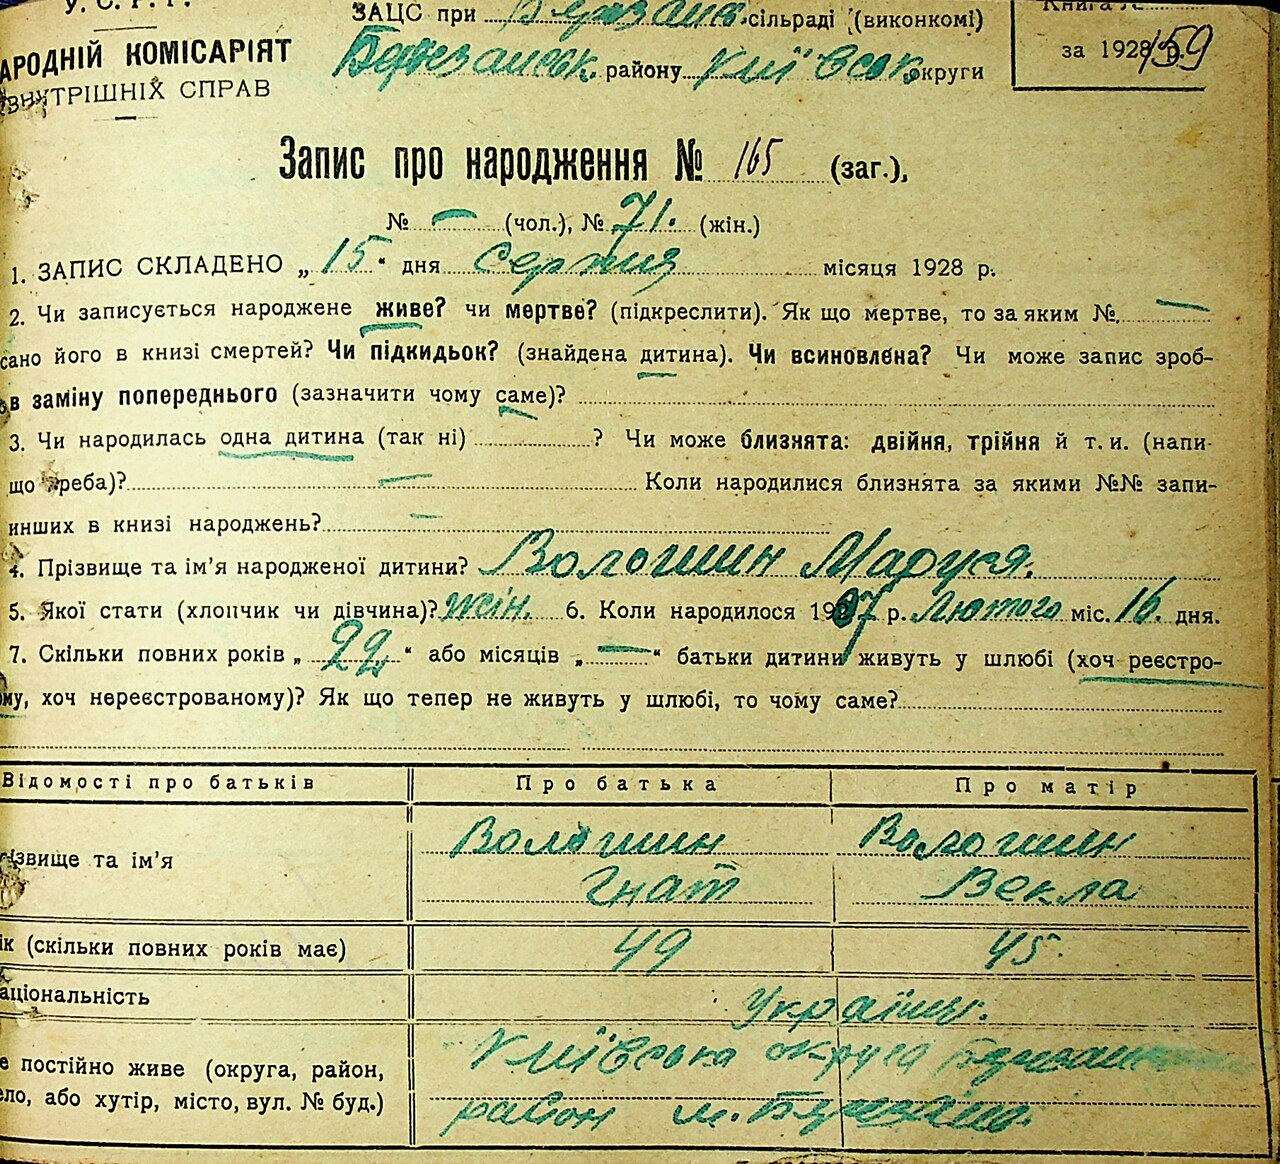 У. С. Р. Р.
ЗАЦС при Березанськ. сільраді (виконкомі)
Книга №
АРОДНІЙ КОМІСАРІЯТ
Березанськ. району Київськ. округи
за 1928 р. 159
ВНУТРІШНІХ СПРАВ
Запис про народження № 165 (заг.),
№ — (чол.), № 71. (жін.)
1. ЗАПИС СКЛАДЕНО „ 15 “ дня Серпня місяця 1928 р.
2. Чи записується народжене живе? чи мертве? (підкреслити). Як що мертве, то за яким № —
сано його в книзі смертей? Чи підкидьок? (знайдена дитина). Чи всиновлена? Чи може запис зроб-
в заміну попереднього (зазначити чому саме)?
3. Чи народилась одна дитина (так ні) ? Чи може близнята: двійня, трійня й т. и. (напи-
що треба)? — Коли народилися близнята за якими №№ запи-
инших в книзі народжень? —
4. Прізвище та ім’я народженої дитини? Волошин Маруся.
5. Якої стати (хлопчик чи дівчина)? жін. 6. Коли народилось 1927 р. Лютого міс. 16. дня.
7. Скільки повних років „ 22 “ або місяців „ — “ батьки дитини живуть у шлюбі (хоч реєстро-
му, хоч нереєстрованому)? Як що тепер не живуть у шлюбі, то чому саме?
Відомості про батьків Про батька Про матір
Волошин Волошин
ізвище та ім’я
Гнат Векла
ік (скільки повних років має) 49 45.
аціональність Українці.
Київська округа
е постійно живе (округа, район,
ело, або хутір, місто, вул. № буд.)
район м. Березань.